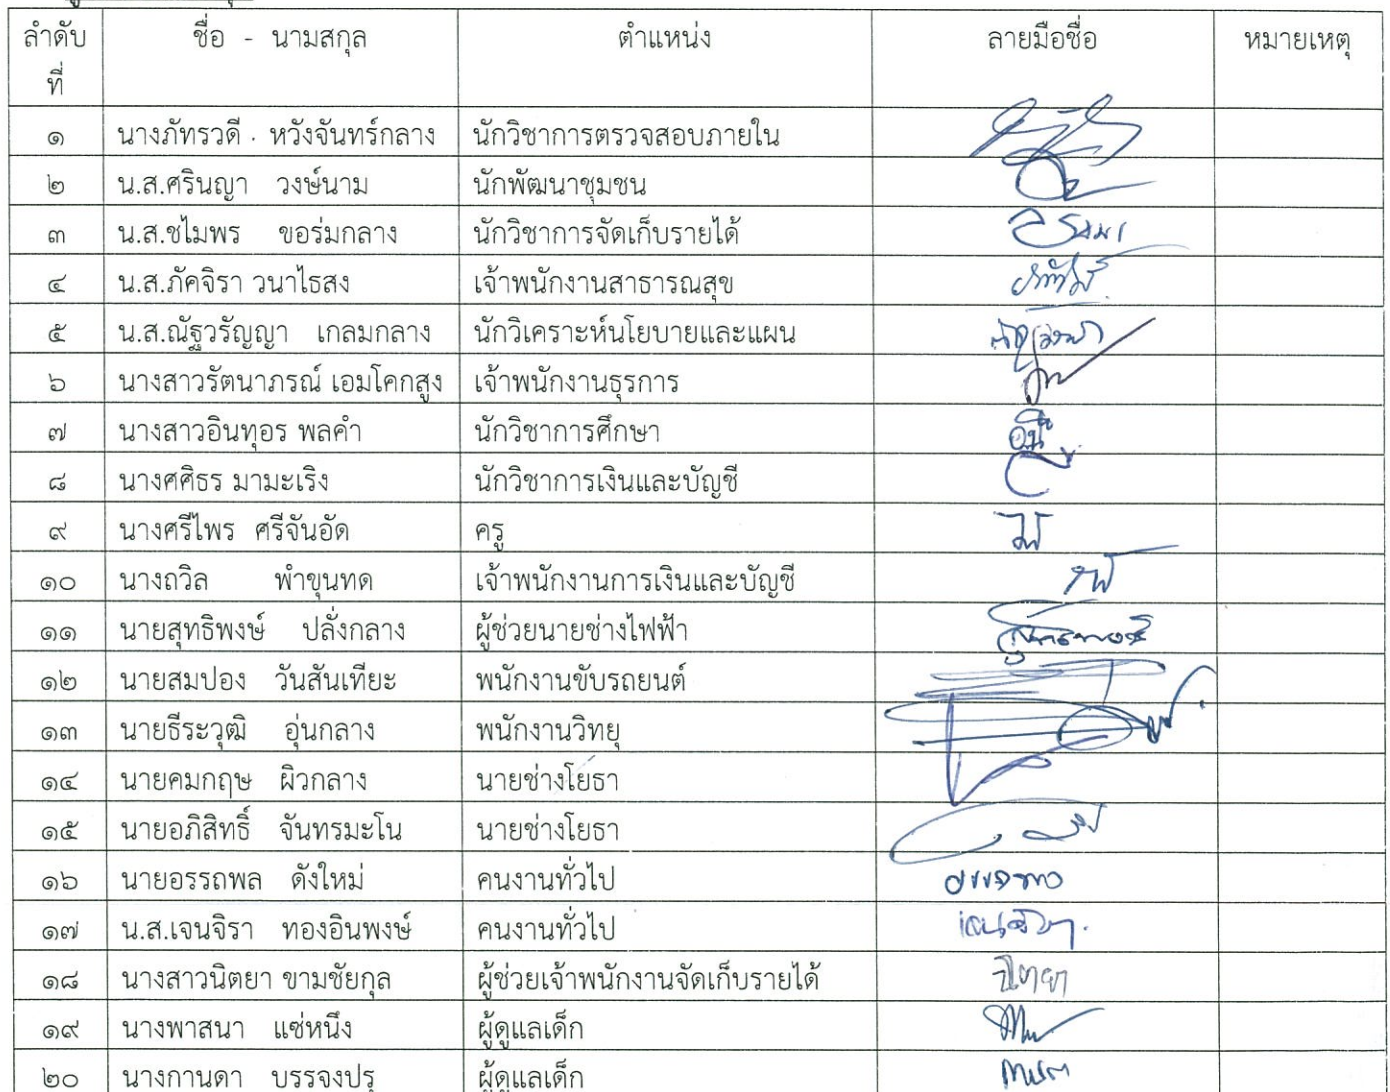 ลำดับ ชื่อ - นามสกุล ตำแหน่ง ลายมือชื่อ หมายเหตุ
ที่
๑ นางภัทรวดี หวังจันทร์กลาง นักวิชาการตรวจสอบภายใน
๒ น.ส.ศรินญา วงษ์นาม นักพัฒนาชุมชน
๓ น.ส.ชไมพร ขอร่มกลาง นักวิชาการจัดเก็บรายได้
๔ น.ส.ภัคจิรา วนาไธสง เจ้าพนักงานสาธารณสุข
๕ น.ส.ณัฐวรัญญา เกลมกลาง นักวิเคราะห์นโยบายและแผน
๖ นางสาวรัตนาภรณ์ เอมโคกสูง เจ้าพนักงานธุรการ
๗ นางสาวอินทุอร พลคำ นักวิชาการศึกษา
๘ นางศศิธร มามะเริง นักวิชาการเงินและบัญชี
๙ นางศรีไพร ศรีจันอัด ครู
๑๐ นางถวิล พำขุนทด เจ้าพนักงานการเงินและบัญชี
๑๑ นายสุทธิพงษ์ ปลั่งกลาง ผู้ช่วยนายช่างไฟฟ้า
๑๒ นายสมปอง วันสันเทียะ พนักงานขับรถยนต์
๑๓ นายธีระวุฒิ อุ่นกลาง พนักงานวิทยุ
๑๔ นายคมกฤษ ผิวกลาง นายช่างโยธา
๑๕ นายอภิสิทธิ์ จันทรมะโน นายช่างโยธา
๑๖ นายอรรถพล ดังใหม่ คนงานทั่วไป
๑๗ น.ส.เจนจิรา ทองอินพงษ์ คนงานทั่วไป เจนจิรา
๑๘ นางสาวนิตยา ขามชัยกุล ผู้ช่วยเจ้าพนักงานจัดเก็บรายได้ นิตยา
๑๙ นางพาสนา แซ่หนึง ผู้ดูแลเด็ก
๒๐ นางกานดา บรรจงปรุ ผู้ดูแลเด็ก